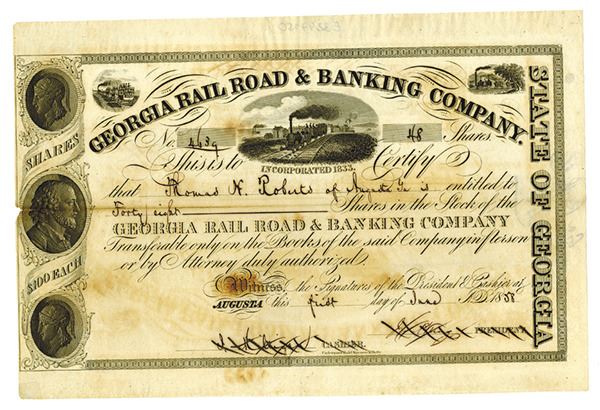 GEORGIA RAIL ROAD & BANKING COMPANY.
No. 4639 48 Shares
INCORPORATED 1833.
This is to Certify
that Thomas N. Roberts of Augusta Ga is entitled to
Forty eight Shares in the Stock of the
GEORGIA RAIL ROAD & BANKING COMPANY
Transferable only on the Books of the said Company in person
or by Attorney duly authorized.
Witness, the Signatures of the President & Cashier at
AUGUSTA this first day of A.D. 1858
CASHIER. PRESIDENT.
SHARES
$100 EACH
STATE OF GEORGIA